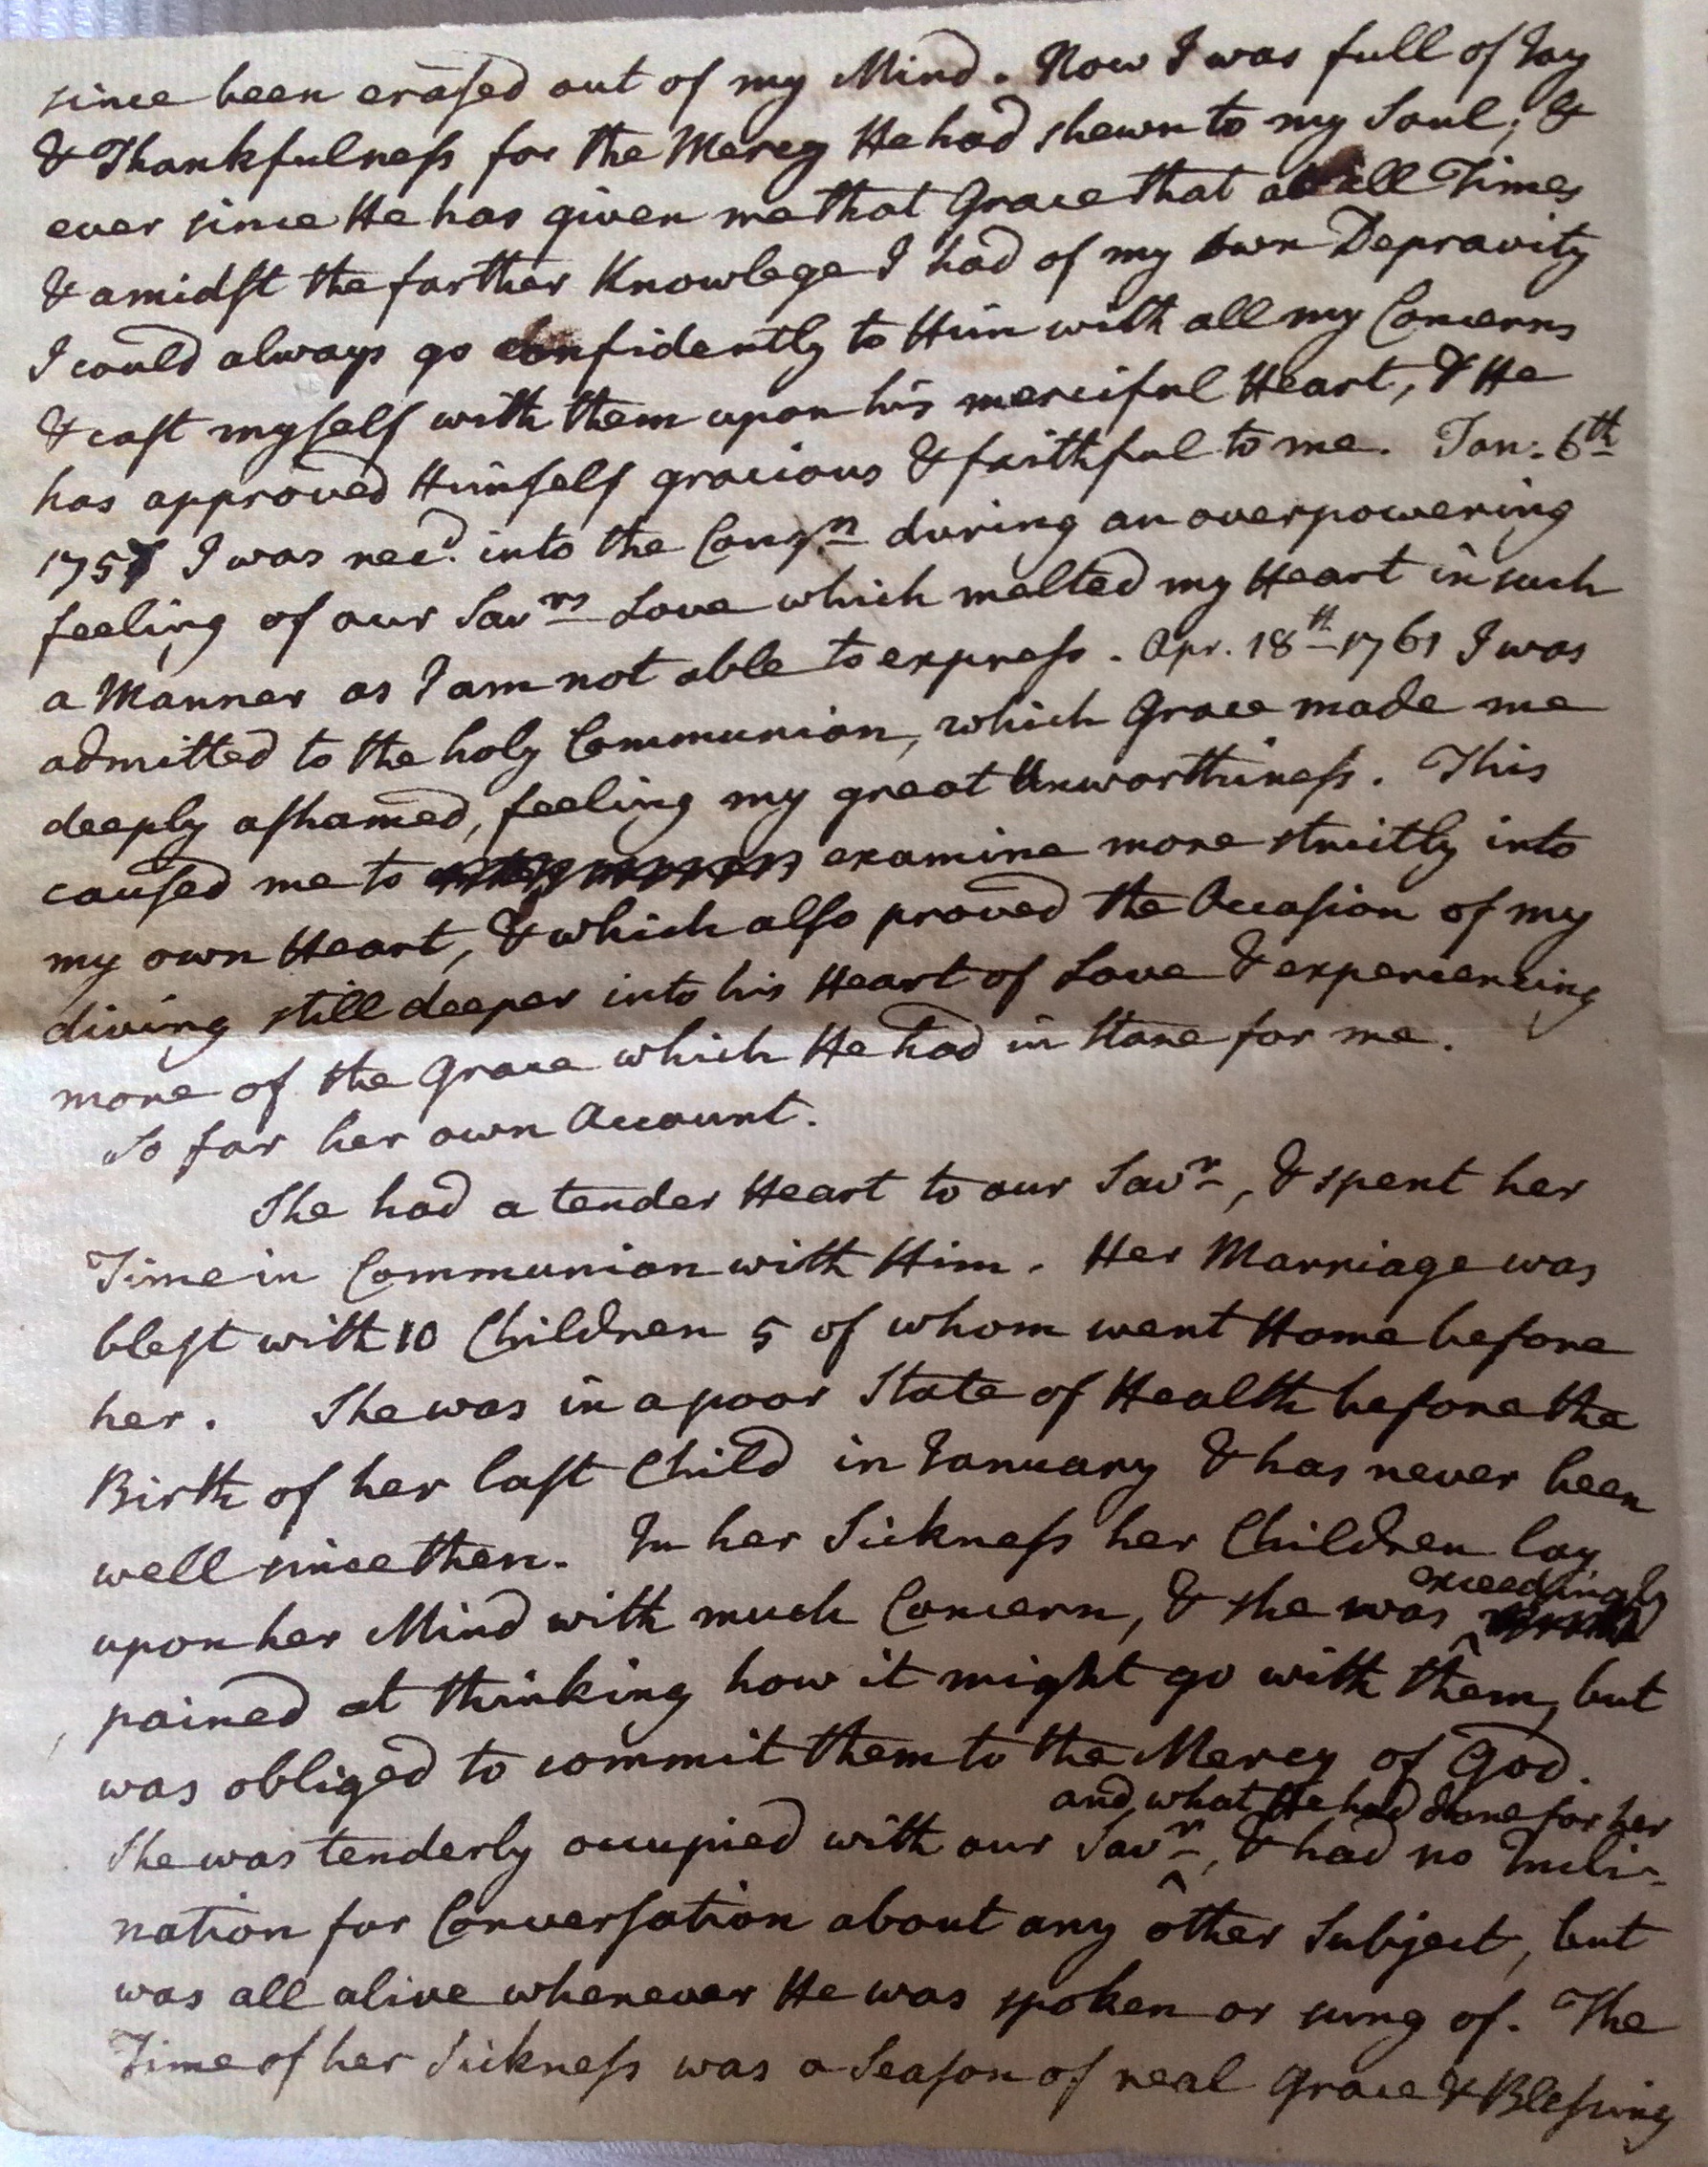 since been erased out of my Mind. Now I was full of Joy
& Thankfulness for the Mercy He had shewn to my Soul; &
ever since He has given me that Grace that at all Times
& amidst the farther Knowlege I had of my own Depravity
I could always go confidently to Him with all my Concerns
& cast myself with them upon his merciful Heart, & He
has approved Himself gracious & faithful to me. Jan: 6th
1757 I was recd. into the Congn during an overpowering
feeling of our Savrs Love which melted my Heart in such
a Manner as I am not able to express. Apr. 18th 1761 I was
admitted to the holy Communion, which Grace made me
deeply ashamed, feeling my great Unworthiness. This
caused me to examine more strictly into
my own Heart, & which also proved the Occasion of my
diving still deeper into his Heart of Love & experiencing
more of the Grace which He had in Store for me.
So far her own Account.
She had a tender Heart to our Savr, & spent her
Time in Communion with Him. Her Marriage was
blest with 10 Children 5 of whom went Home before
her. She was in a poor State of Health before the
Birth of her last Child in January & has never been
well since then. In her Sickness her Children lay
upon her Mind with much Concern, & she was exceedingly
pained at thinking how it might go with them, but
was obliged to commit them to the Mercy of God.
and what He had done for her
She was tenderly occupied with our Savr, & had no Incli-
nation for Conversation about any other Subject, but
was all alive whenever He was spoken or sung of. The
Time of her Sickness was a Season of real Grace & Blessing